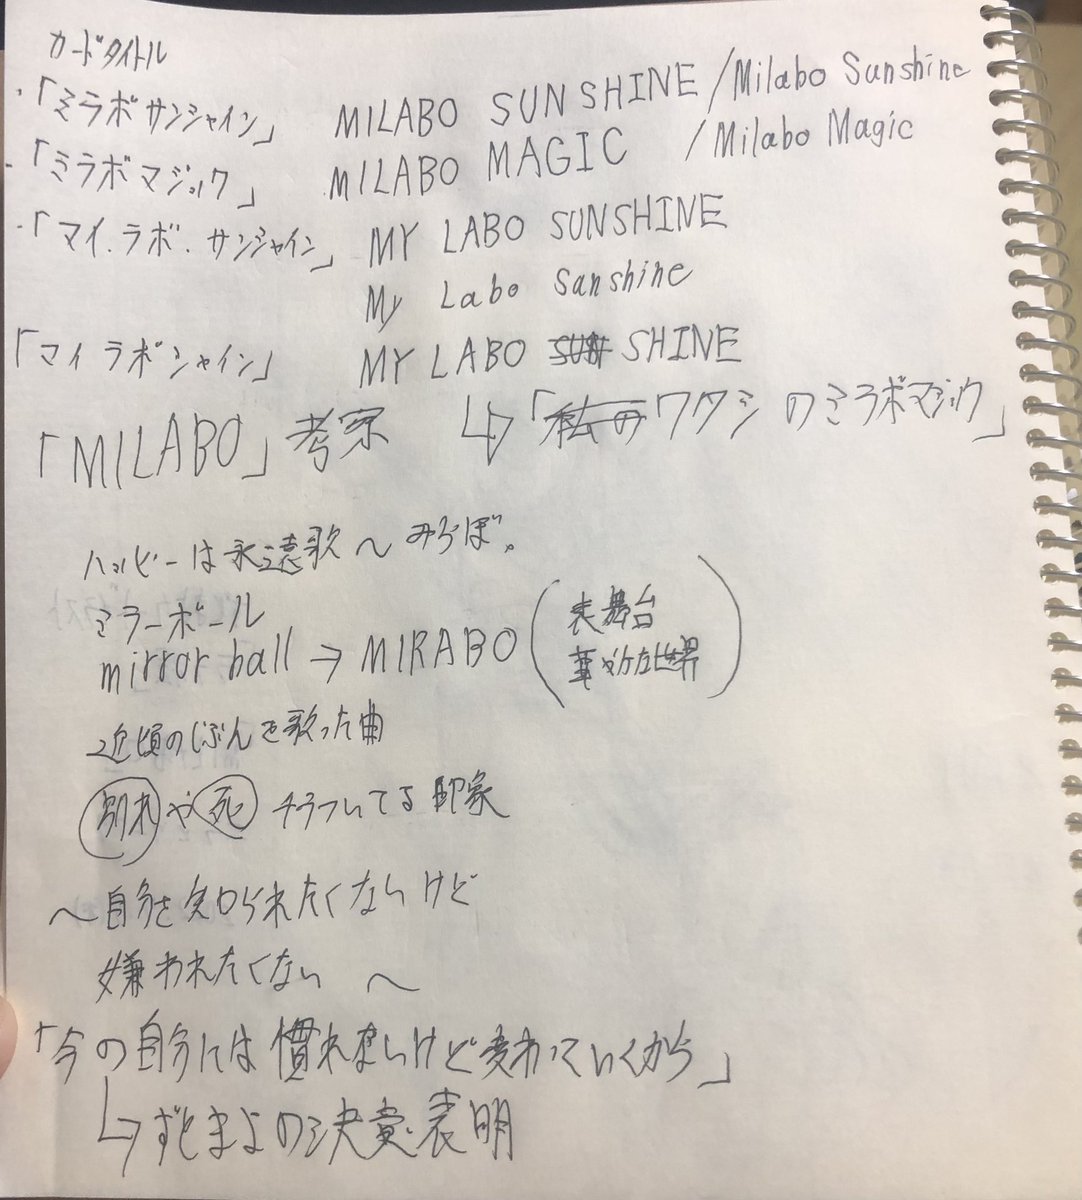 カードタイトル
・「ミラボサンシャイン」 MILABO SUNSHINE / Milabo Sunshine
・「ミラボマジック」 MILABO MAGIC / Milabo Magic
・「マイ・ラボ・サンシャイン」 MY LABO SUNSHINE
My Labo Sanshine
「マイラボシャイン」 MY LABO SUN SHINE
「MILABO」考察 ↳「私のワタシのミラボマジック」
ハッピーは永遠歌〜みらぼ。
ミラーボール
mirror ball → MIRABO (表舞台
華やかな世界)
近頃のじぶんを歌った曲
別れや死チラついてる印象
〜自分を知られたくないけど
嫌われたくない〜
「今の自分には慣れないけど変わっていくから」
↳ずとまよの決意表明